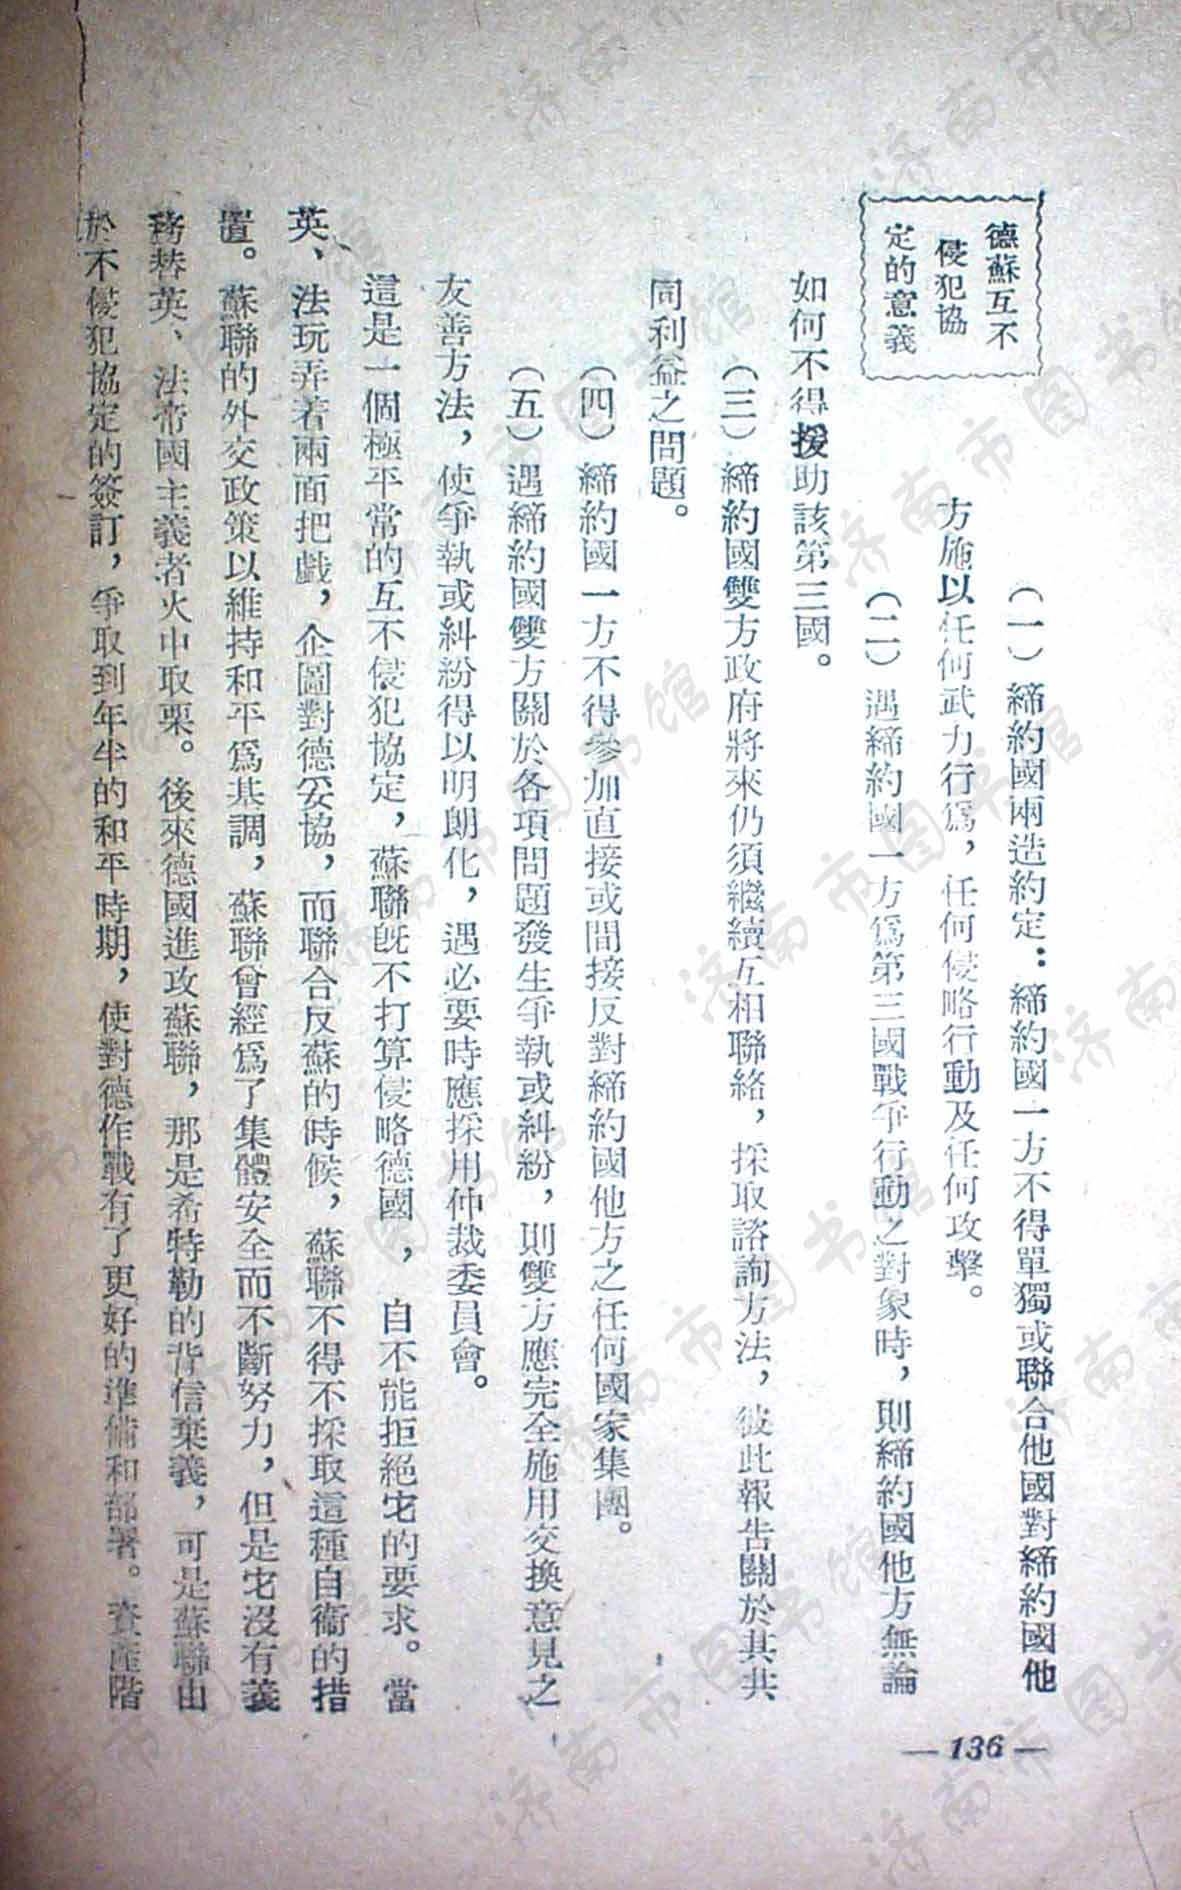 德蘇互不
侵犯協
定的意義
（一）締約國兩造約定：締約國一方不得單獨或聯合他國對締約國他
方施以任何武力行爲，任何侵略行動及任何攻擊。
（二）遇締約國一方爲第三國戰爭行動之對象時，則締約國他方無論
如何不得援助該第三國。
（三）締約國雙方政府將來仍須繼續互相聯絡，採取諮詢方法，彼此報告關於其共
同利益之問題。
（四）締約國一方不得參加直接或間接反對締約國他方之任何國家集團。
（五）遇締約國雙方關於各項問題發生爭執或糾紛，則雙方應完全施用交換意見之
友善方法，使爭執或糾紛得以明朗化，遇必要時應採用仲裁委員會。
這是一個極平常的互不侵犯協定，蘇聯旣不打算侵略德國，自不能拒絕它的要求。當
英、法玩弄着兩面把戲，企圖對德妥協，而聯合反蘇的時候，蘇聯不得不採取這種自衞的措
置。蘇聯的外交政策以維持和平爲基調，蘇聯曾經爲了集體安全而不斷努力，但是它沒有義
務替英、法帝國主義者火中取栗。後來德國進攻蘇聯，那是希特勒的背信棄義，可是蘇聯由
於不侵犯協定的簽訂，爭取到年半的和平時期，使對德作戰有了更好的準備和部署。資產階
— 136 —
济南市图书馆